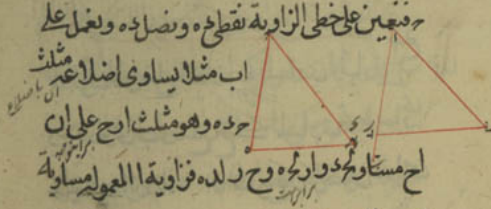 فنعين على خطى الزاوية نقطى ده ونصل ده ونعمل على
اب مثلا يساوى اضلاعه مثلث
ح ده وهو مثلث ارح على ان
اح مساو لحد وار لحه وح ر لده فزاوية ا المعمولة مساوية